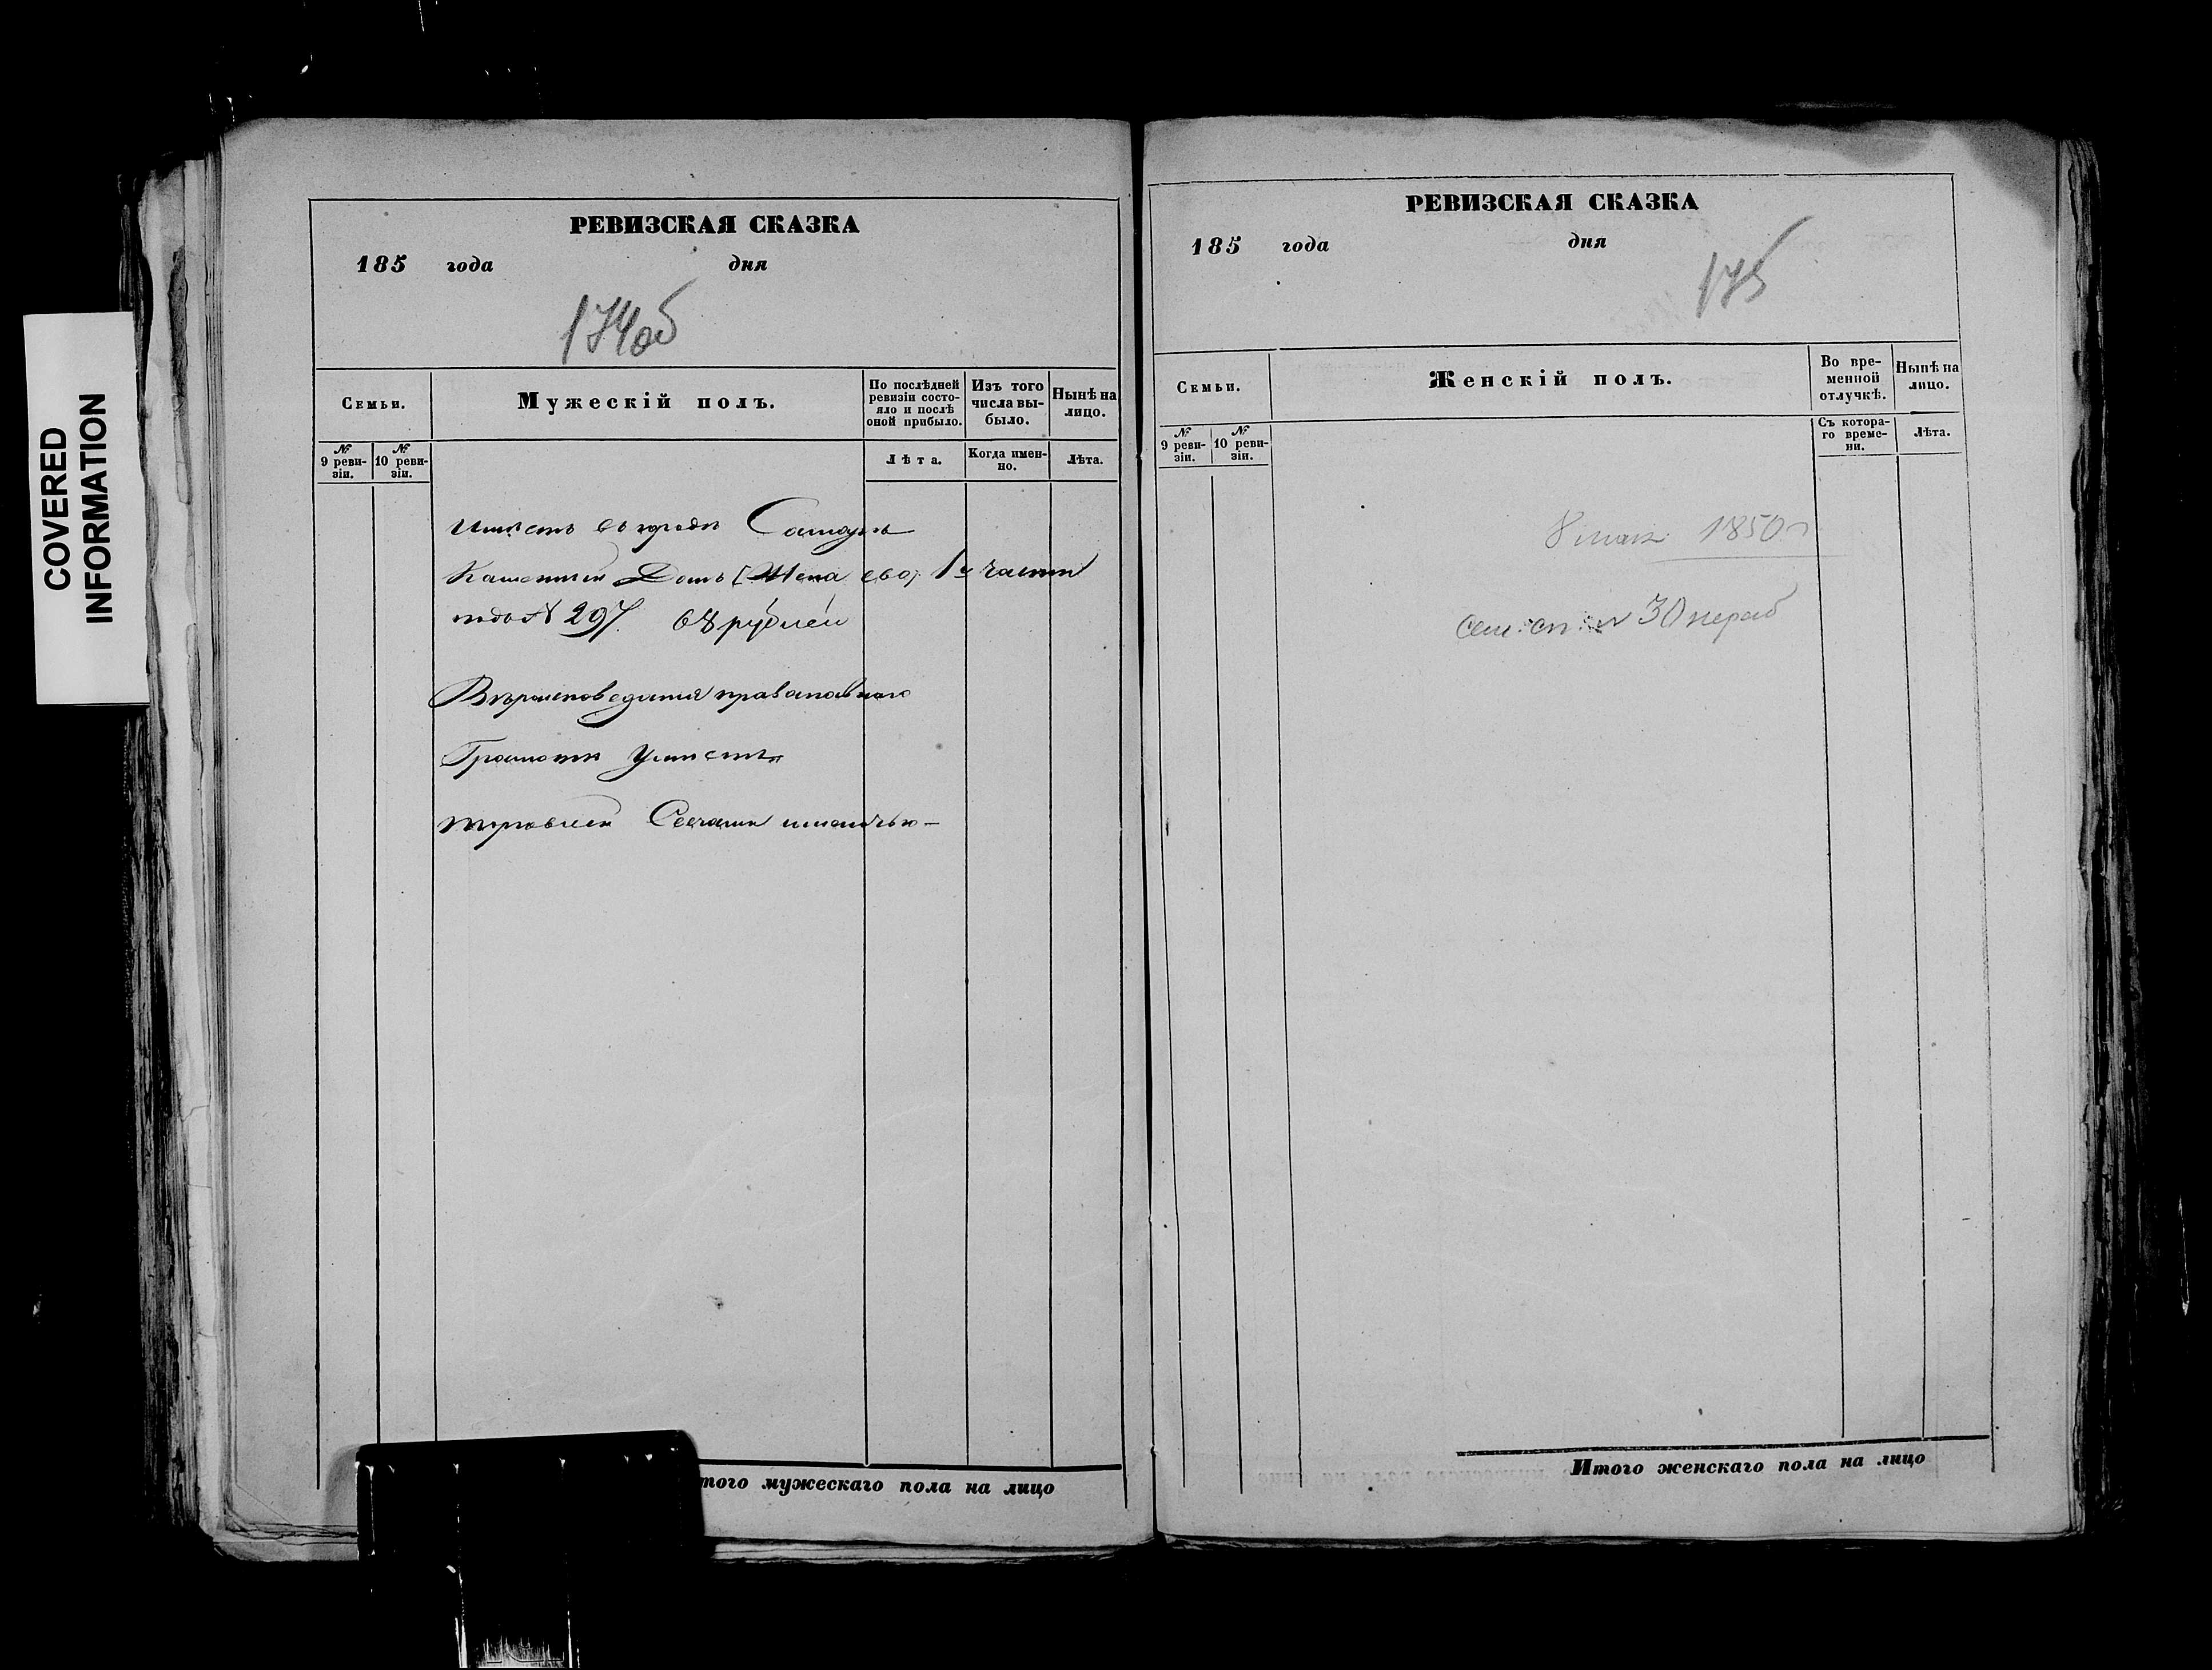 COVERED
INFORMATION
РЕВИЗСКАЯ СКАЗКА
185 года дня
174об
Семьи.
Мужескій полъ.
По послѣдней
ревизіи состо-
яло и послѣ
оной прибыло.
Изъ того
числа вы-
было.
Нынѣ на
лицо.
№
9 реви-
зіи.
№
10 реви-
зіи.
Лѣта.
Когда имен-
но.
Лѣта.
Имѣетъ въ городѣ Самарѣ
Каменный Домъ [Жена его] 1й части
подъ № 297. 68 рублей
Вѣроисповеданія православнаго
Грамотѣ умѣетъ
торовлей
того мужескаго пола на лицо
РЕВИЗСКАЯ СКАЗКА
185 года дня
175
Семьи.
Женскій полъ.
Во вре-
менной
отлучкѣ.
Нынѣ на
лицо.
№
9 реви-
зіи.
№
10 реви-
зіи.
Съ котора-
го време-
ни.
Лѣта.
8 мая 1850 г
сем: сп: № 30
Итого женскаго пола на лицо